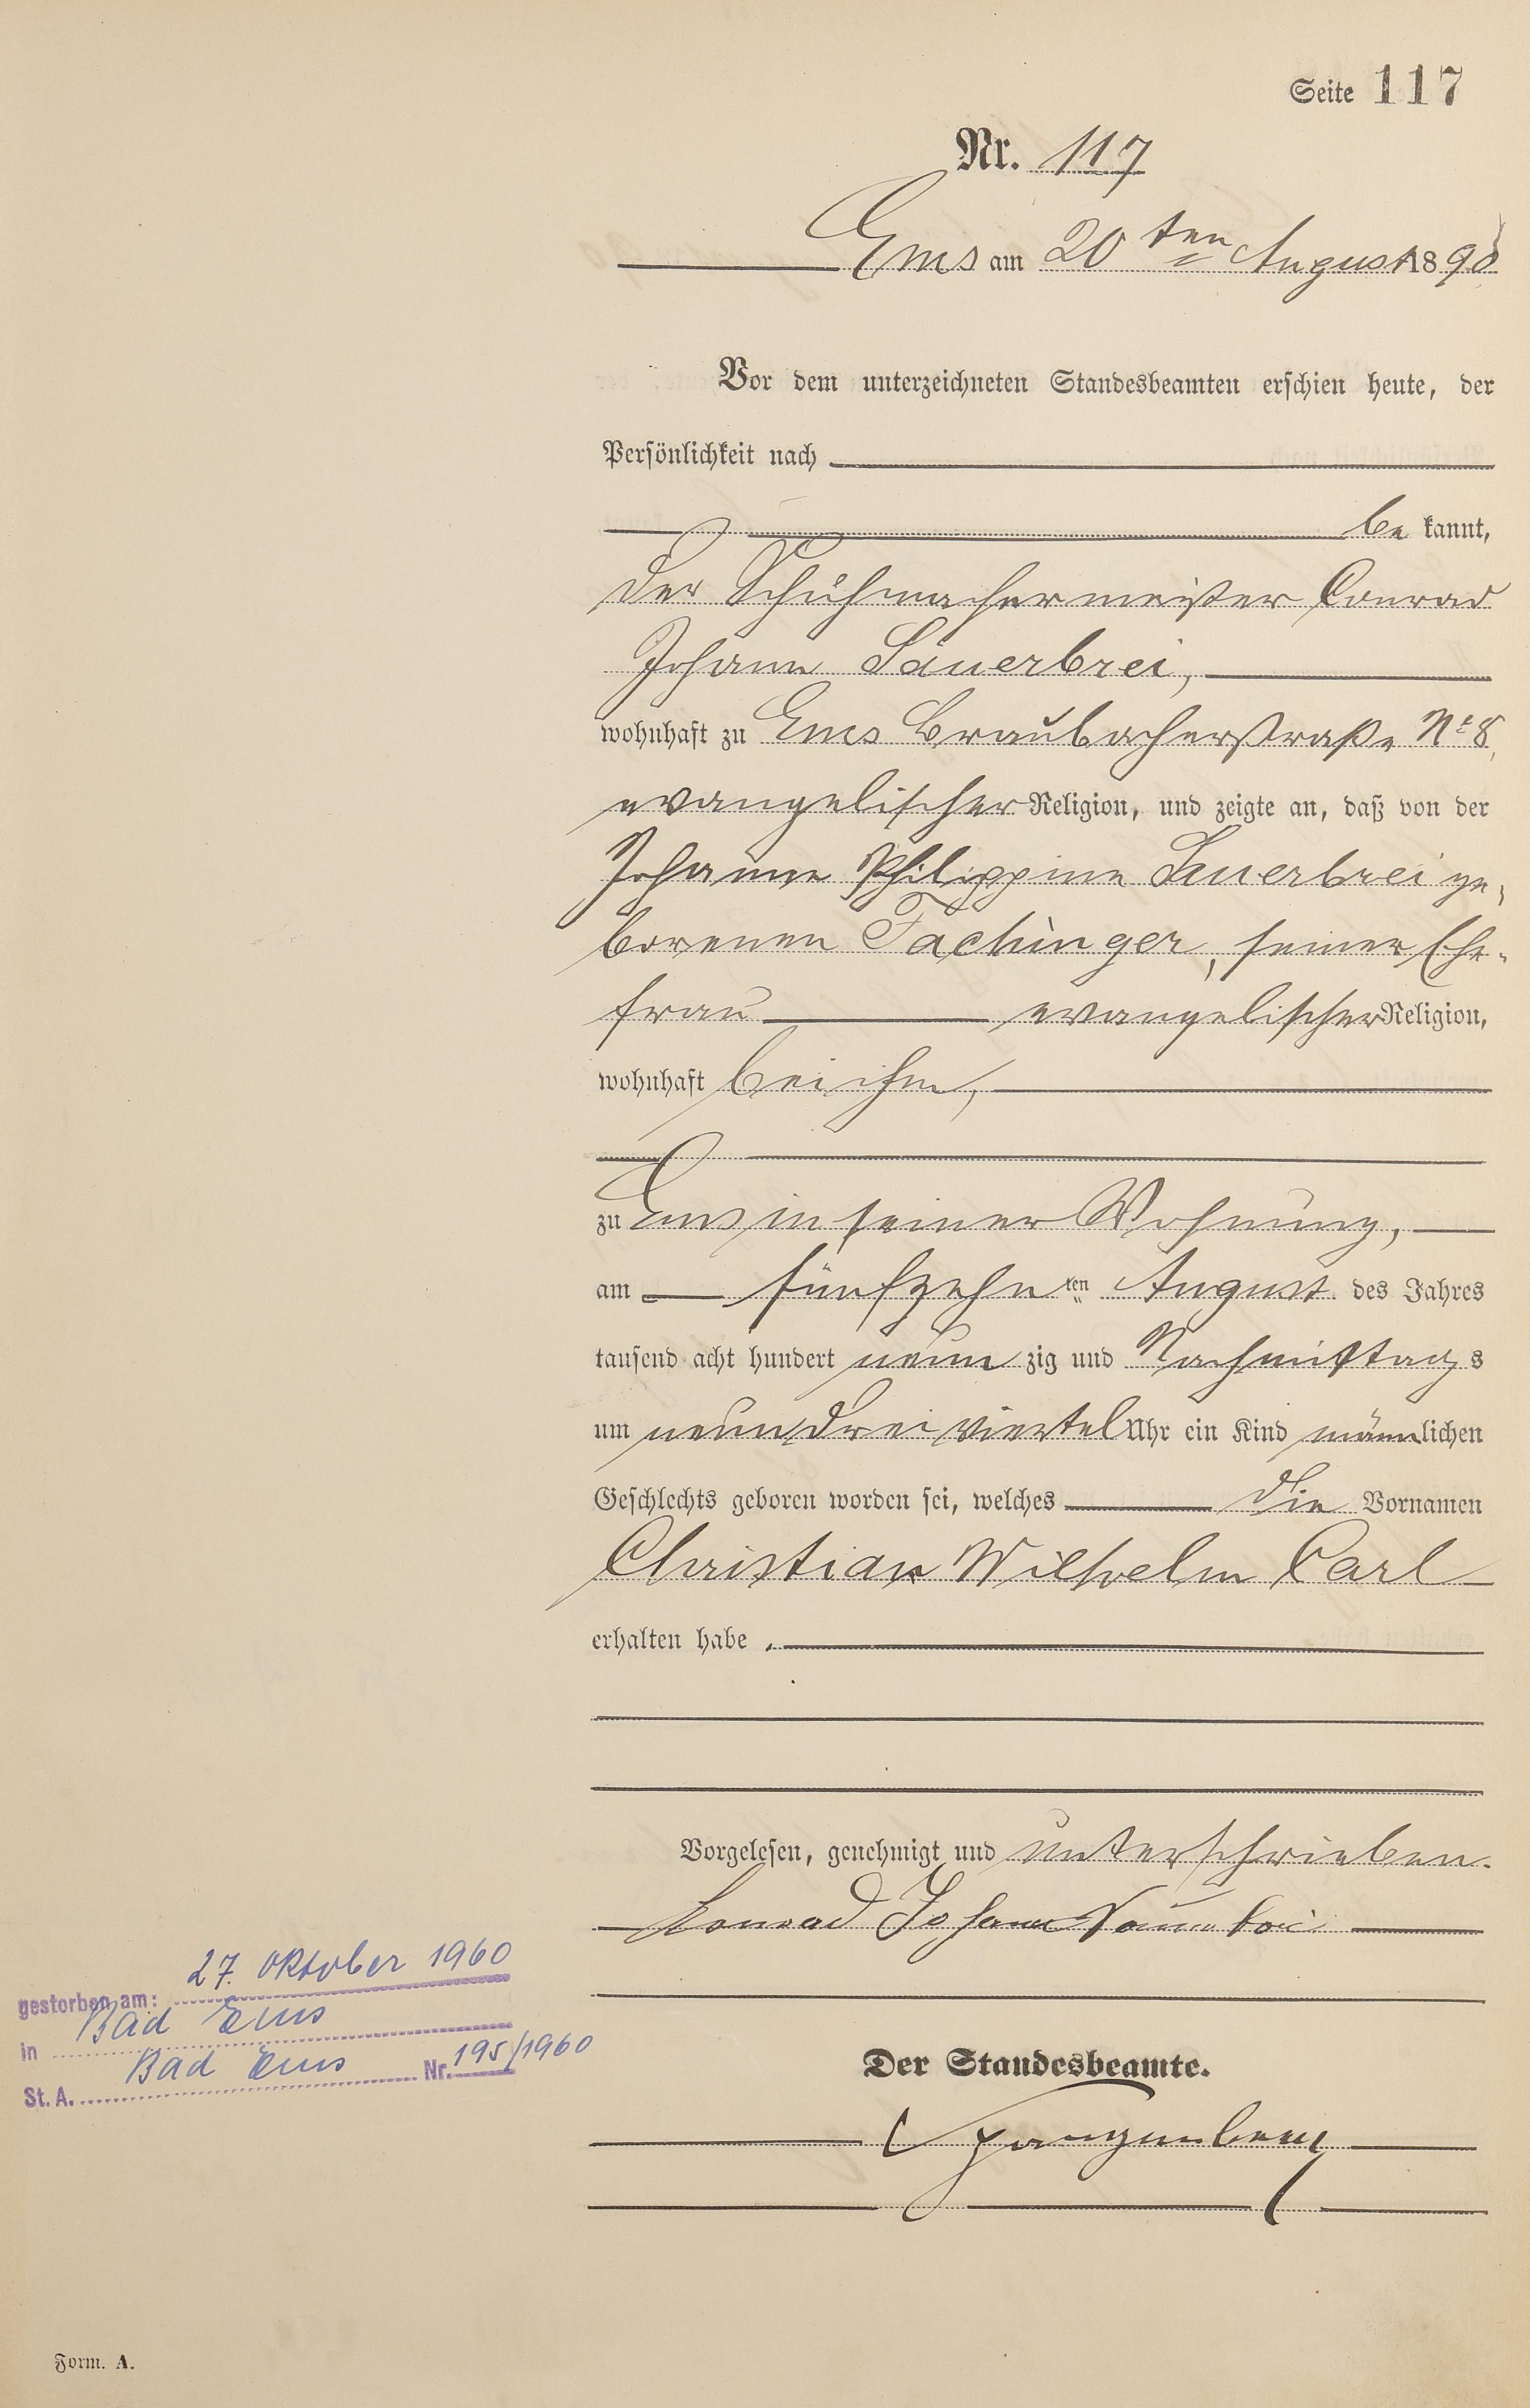 Seite 117
Nr. 117
Ems am 20ten August 1890
Vor dem unterzeichneten Standesbeamten erschien heute, der
Persönlichkeit nach
be kannt,
der Schuhmachermeister Conrad
Johann Sauerbrei,
wohnhaft zu Ems Braubacherstraße No 8,
evangelischer Religion, und zeigte an, daß von der
Johanne Philippine Sauerbrei ge-
borenen Fachinger, seiner Ehe-
frau evangelischer Religion,
wohnhaft bei ihm,
zu Ems in seiner Wohnung,
am fünfzehnten August des Jahres
tausend acht hundert neunzig und Nachmittags
um neundreiviertel Uhr ein Kind männlichen
Geschlechts geboren worden sei, welches die Vornamen
Christian Wilhelm Carl
erhalten habe.
Vorgelesen, genehmigt und unterschrieben.
Konrad Johann Sauerbrei
gestorben am: 27. Oktober 1960
in Bad Ems
St. A. Bad Ems Nr. 195/1960
Der Standesbeamte.
Form. A.